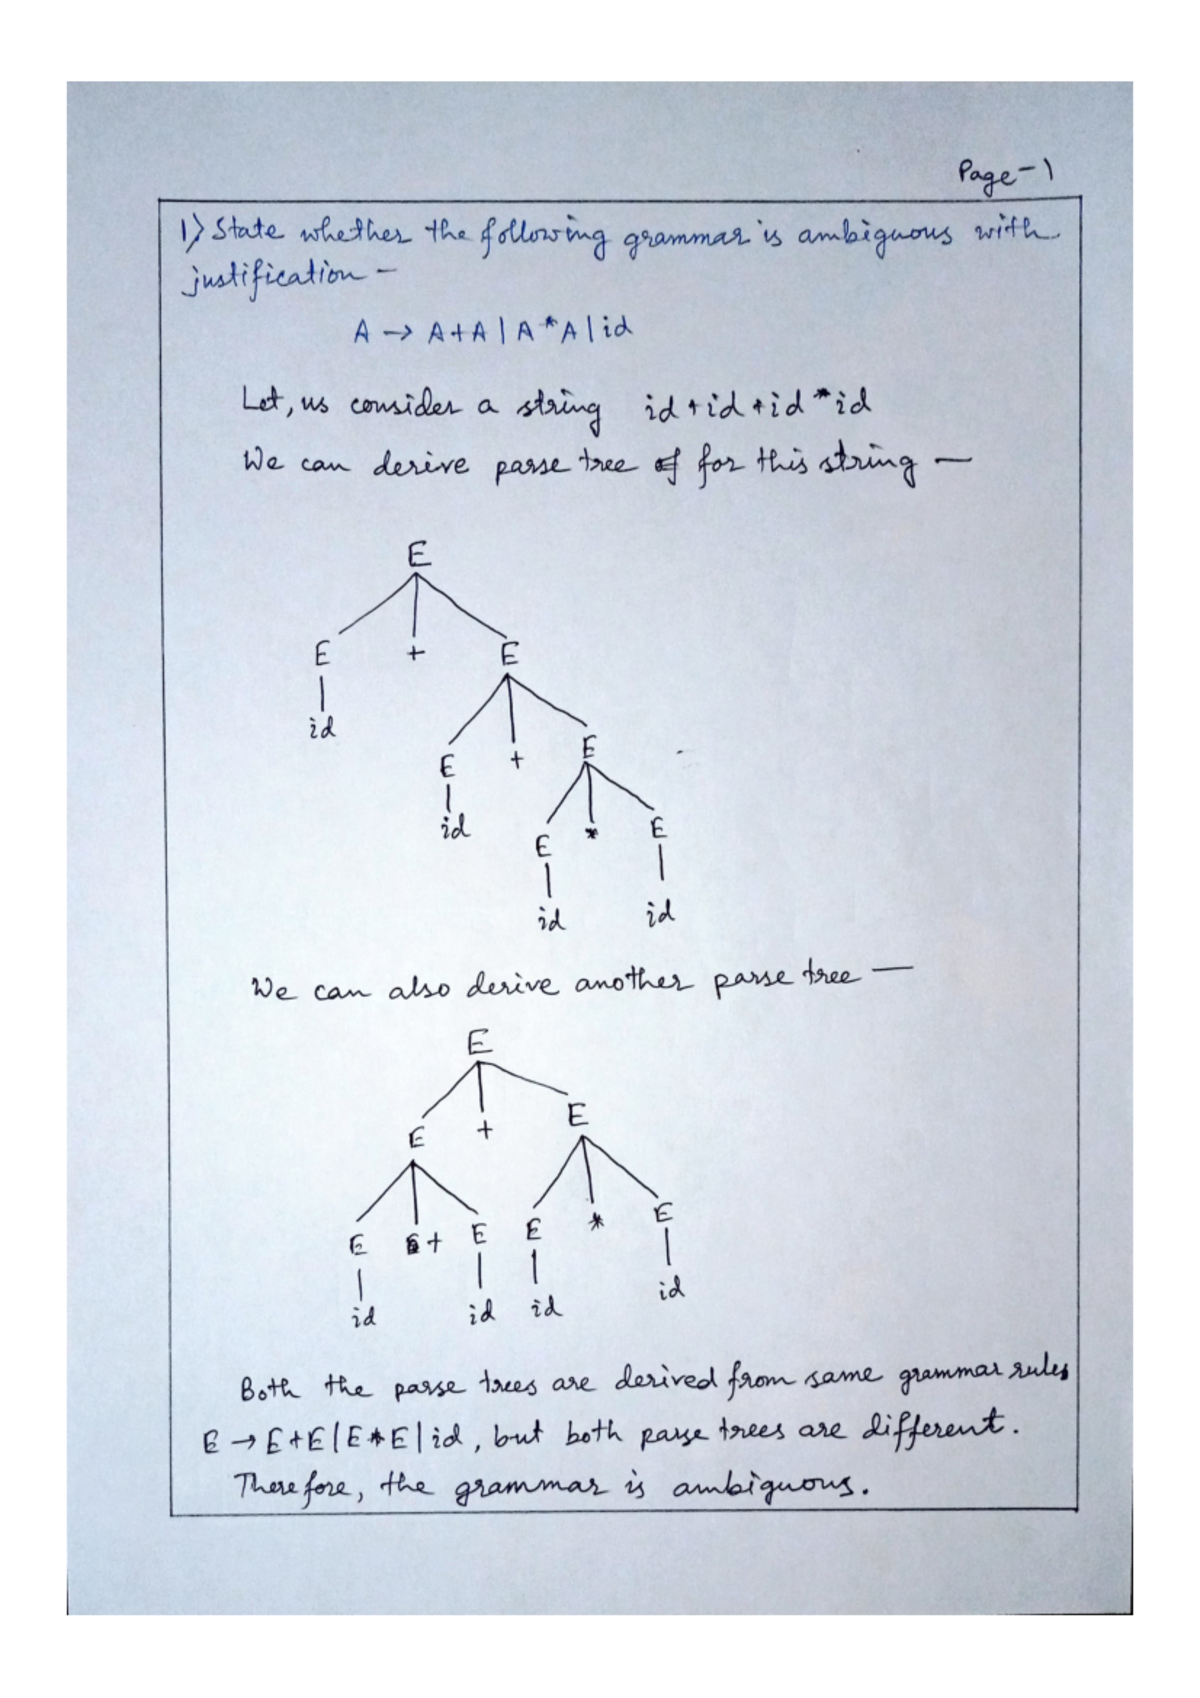 Page-1
1) State whether the following grammar is ambiguous with
justification -
A → A+A | A*A | id
Let, us consider a string id+id+id*id
We can derive parse tree for this string —
E
E + E
id
E + E
id
E * E
id id
We can also derive another parse tree —
E
E + E
E + E E * E
id id id id
Both the parse trees are derived from same grammar rules
E → E+E | E*E | id, but both parse trees are different.
Therefore, the grammar is ambiguous.